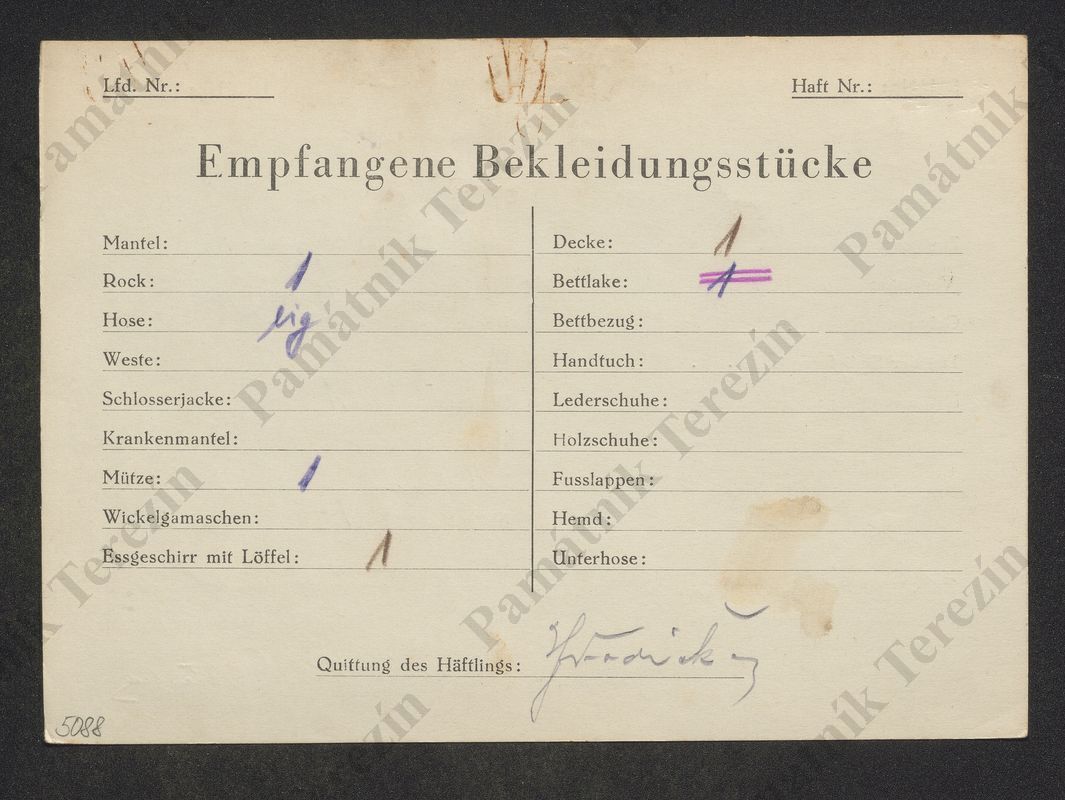 Lfd. Nr.:
Haft Nr.:
Empfangene Bekleidungsstücke
Mantel:
Rock: 1
Hose: eig
Weste:
Schlosserjacke:
Krankenmantel:
Mütze: 1
Wickelgamaschen:
Essgeschirr mit Löffel: 1
Decke: 1
Bettlake: 1
Bettbezug:
Handtuch:
Lederschuhe:
Holzschuhe:
Fusslappen:
Hemd:
Unterhose:
Quittung des Häftlings:
5088
Památník Terezín